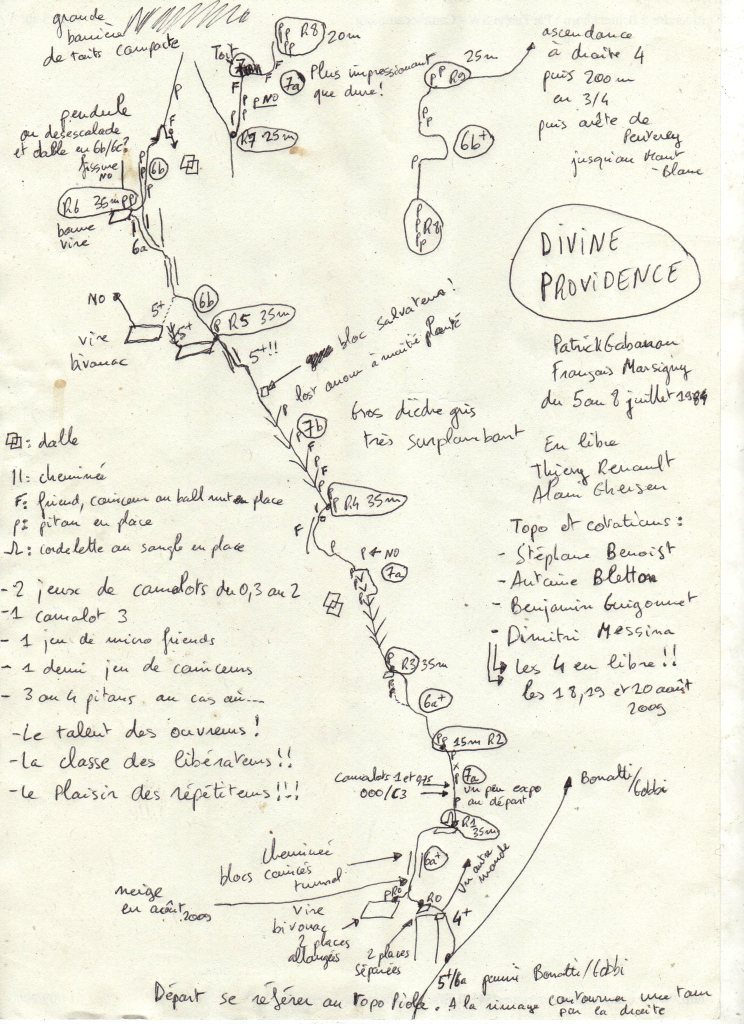 grande
barrière
de toits compacte
Toit
P P R8
P P
20m
7a
F
F
7a
Plus impressionant
que dure!
P NO
P
P
R7 25m
P P R9
25m
ascendance
à droite 4
puis 200m
en 3/4
puis arête de
Peuterey
jusqu'au Mont
-Blanc
P
P
P
6b+
P
P R8
P P
pendule
ou desescalade
et dalle en 6b/6c?
fissure
NO
P
F
P
P
P
6b
R6 35m PP
bonne
vire
6a
DIVINE
PROVIDENCE
NO
5+
6b
vire
bivouac
5+
P R5 35m
5+!!
bloc salvateur!
lost arrow à moitié planté
Patrick Gabarrou
François Marsigny
du 5 au 8 juillet 1984
7b
F
F
P
P
F
Gros dièdre gris
très surplombant
En libre
Thierry Renault
Alain Ghersen
: dalle
: cheminée
F: friend, coinceur ou ball nut en place
P: piton en place
: cordelette ou sangle en place
P R4 35m
F
P ← NO
7a
Topo et cotations:
- Stéphane Benoist
- Antoine Bletton
- Benjamin Guigonnet
- Dimitri Messina
Les 4 en libre!!
les 18,19 et 20 août
2009
- 2 jeux de camalots du 0,3 au 2
- 1 camalot 3
- 1 jeu de micro friends
- 1 demi jeu de coinceurs
- 3 ou 4 pitons au cas où....
- Le talent des ouvreurs!
- La classe des libérateurs!!
- Le Plaisir des répétiteurs!!!
P P R3
35m
6a+
PP 15m R2
P
x
P
P
7a
camalots 1 et 0,75
000/C3
un peu expo
au départ
Bonatti/
Gobbi
R1
35m
cheminée
blocs coincés
tunnel
6a+
un autre
monde
neige
en août 2009
P R0
R0
4+
vire
bivouac
2 places
allongées
2 places
séparées
5+/6a parmi Bonatti/Gobbi
Départ se référer au topo Piola. A la rimaye contourner une tour
par la droite